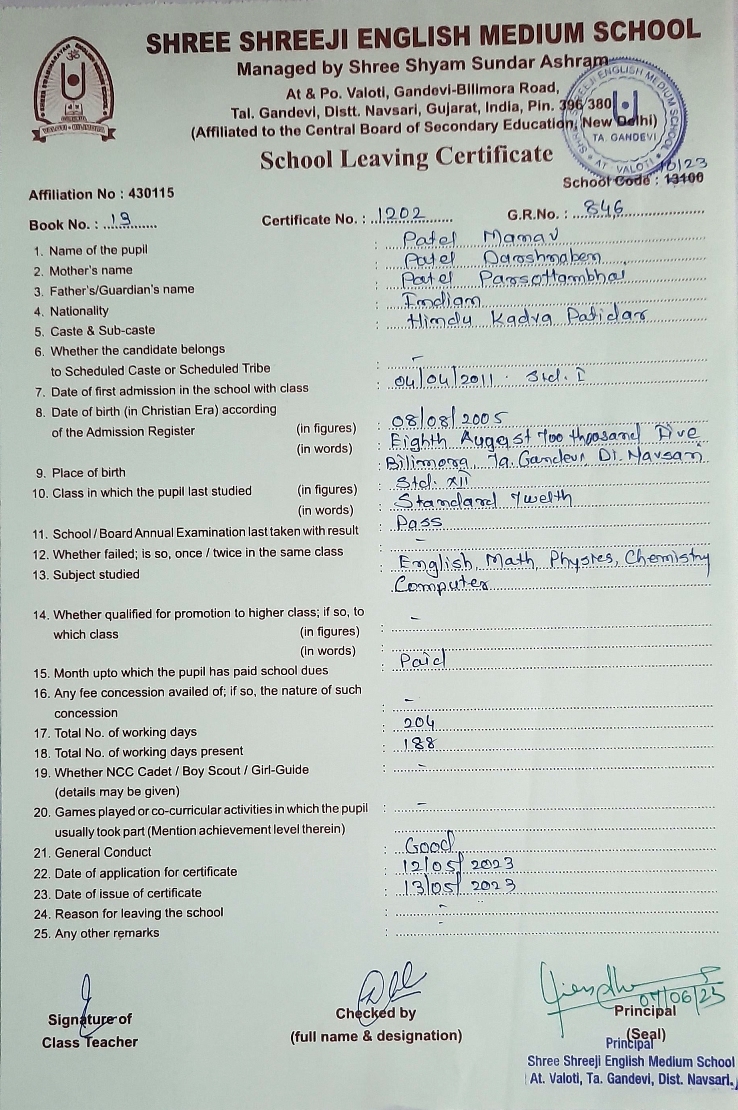 SHREE SHREEJI ENGLISH MEDIUM SCHOOL
Managed by Shree Shyam Sundar Ashram
At & Po. Valoti, Gandevi-Bilimora Road,
Tal. Gandevi, Distt. Navsari, Gujarat, India, Pin. 396 380
(Affiliated to the Central Board of Secondary Education, New Delhi)
TA. GANDEVI
AT. VALOTI
School Leaving Certificate
10123
Affiliation No : 430115 School Code : 13100
Book No. : 19 Certificate No. : 1202 G.R.No. : 846
1. Name of the pupil : Patel Manav
2. Mother's name : Patel Darshnaben
3. Father's/Guardian's name : Patel Parsottambhai
4. Nationality : Indian
5. Caste & Sub-caste : Hindu Kadva Patidar
6. Whether the candidate belongs
to Scheduled Caste or Scheduled Tribe : -
7. Date of first admission in the school with class : 04/04/2011. Std. I
8. Date of birth (in Christian Era) according
of the Admission Register (in figures) : 08/08/2005
(in words) : Eighth August Two thousand Five
9. Place of birth : Bilimora, Ta. Gandevi Di. Navsari
10. Class in which the pupil last studied (in figures) : Std. XII
(in words) : Standard Twelth
11. School / Board Annual Examination last taken with result : Pass
12. Whether failed; is so, once / twice in the same class : -
13. Subject studied : English, Math, Physics, Chemistry
Computer
14. Whether qualified for promotion to higher class; if so, to
which class (in figures) : -
(in words) :
15. Month upto which the pupil has paid school dues : Paid
16. Any fee concession availed of; if so, the nature of such
concession : -
17. Total No. of working days : 204
18. Total No. of working days present : 188
19. Whether NCC Cadet / Boy Scout / Girl-Guide : -
(details may be given)
20. Games played or co-curricular activities in which the pupil : -
usually took part (Mention achievement level therein)
21. General Conduct : Good
22. Date of application for certificate : 12/05/2023
23. Date of issue of certificate : 13/05/2023
24. Reason for leaving the school : -
25. Any other remarks : -
07/06/23
Signature of Checked by Principal
Class Teacher (full name & designation) (Seal)
Principal
Shree Shreeji English Medium School
At. Valoti, Ta. Gandevi, Dist. Navsari.